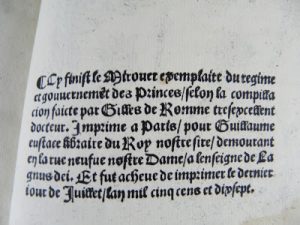 Cy finist le Mirouer exemplaire du regime
et gouvernemēt des Princes/selon la compilla
cion faicte par Gilles de Romme tresexcellent
docteur. Imprime a Paris/ pour Guillaume
eustace libraire du Roy nostre sire/ demourant
en la rue neufue nostre Dame/ a lenseigne de La
gnus dei. Et fut acheue de imprimer le dernier
iour de Juillet/ lan mil cinq cens et dixsept.